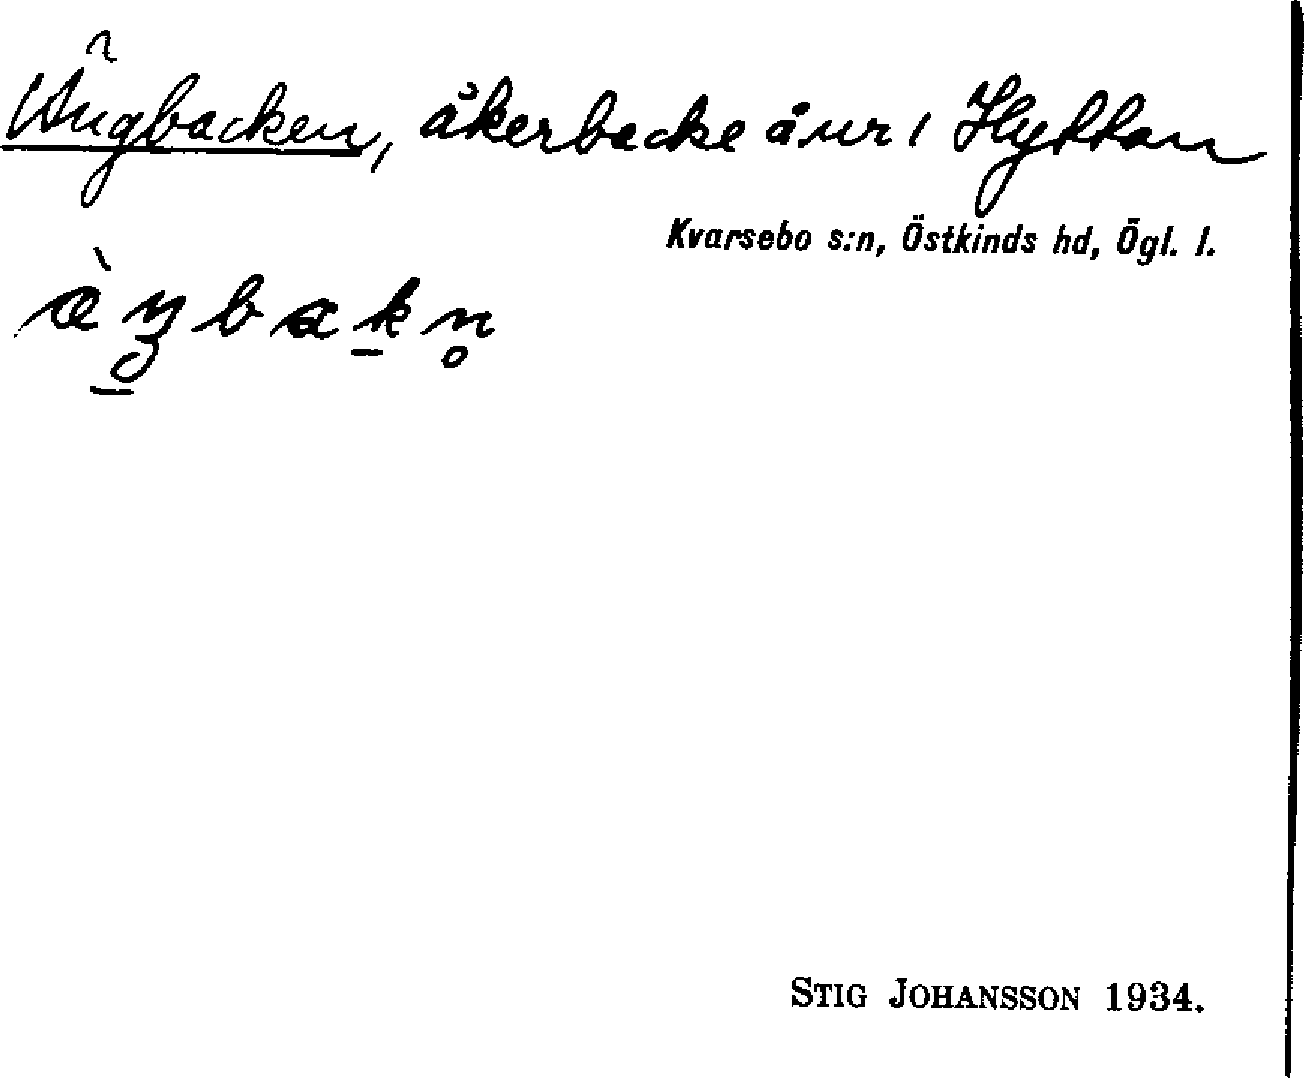 Ängbacken, åkerbacke å nr 1 Hyttan
Kvarsebo s:n, Östkinds hd, Ögl. l.
STIG JOHANSSON 1934.